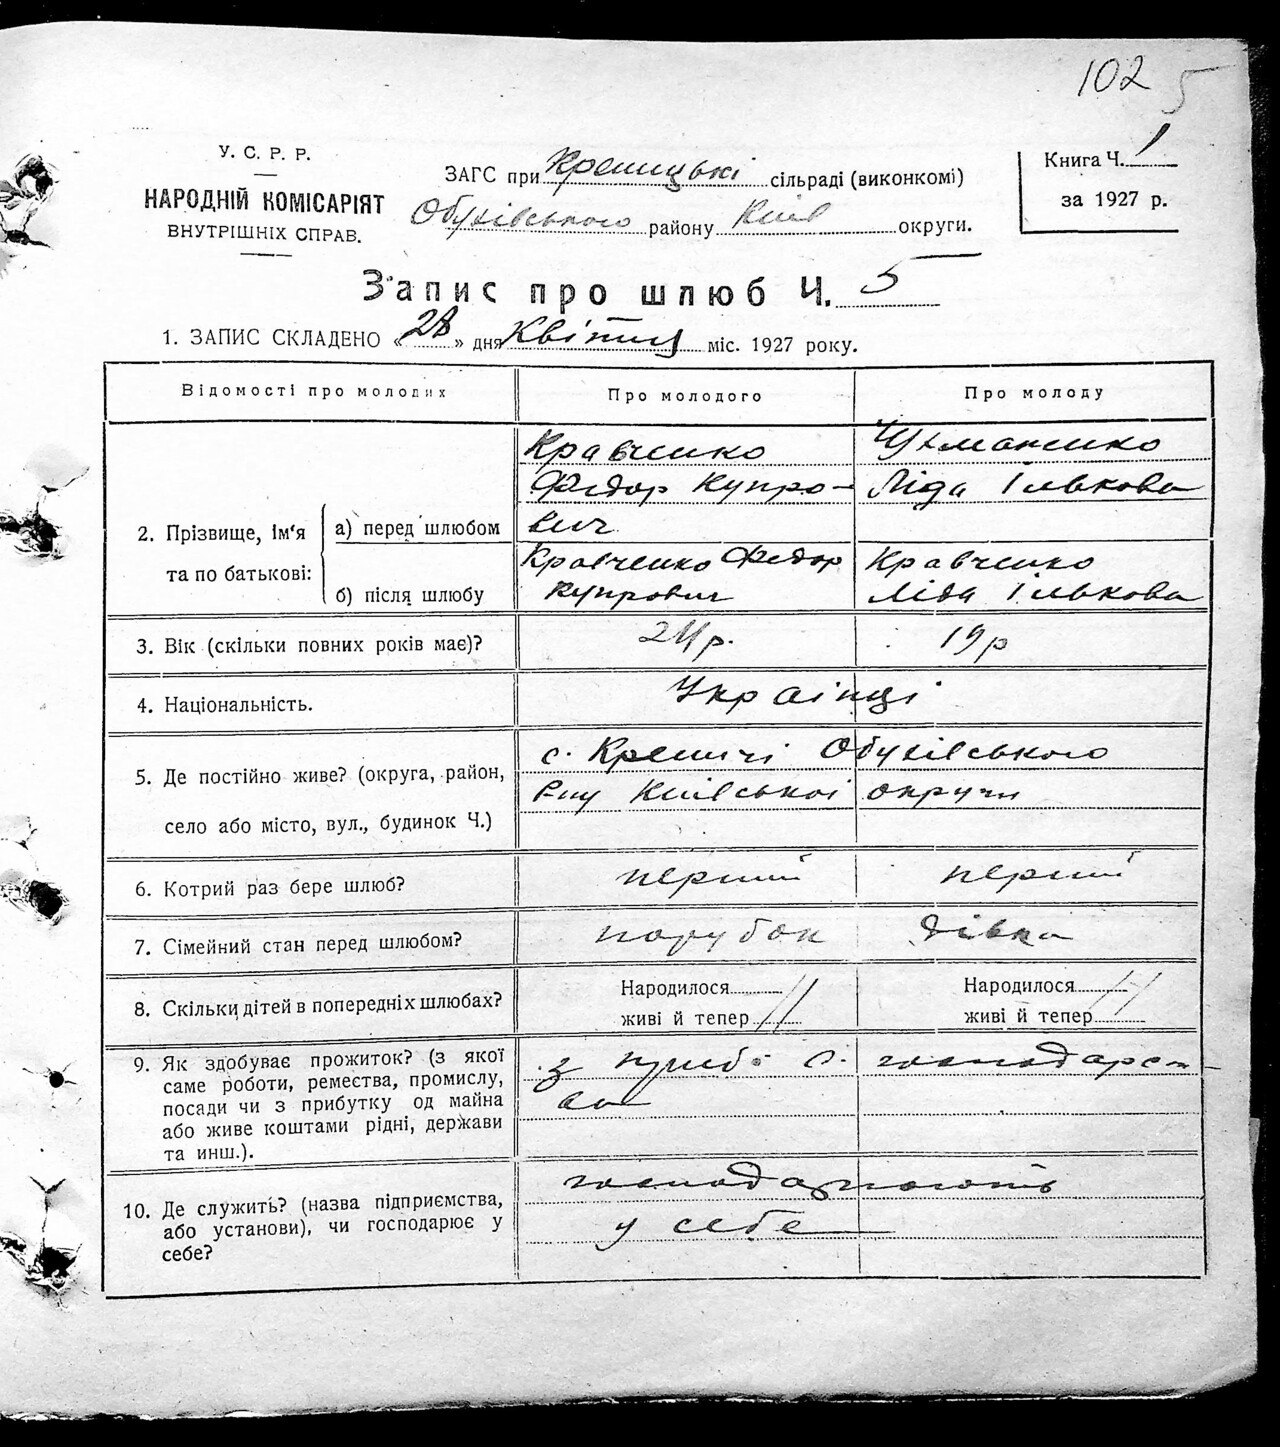 102 5
У. С. Р. Р.
НАРОДНІЙ КОМІСАРІЯТ
ВНУТРІШНІХ СПРАВ.
ЗАГС при Креницькі сільраді (виконкомі)
Обухівського району Київ округи.
Книга Ч. 1
за 1927 р.
Запис про шлюб Ч. 5
1. ЗАПИС СКЛАДЕНО «28» дня Квітня міс. 1927 року.
Відомості про молодих
Про молодого
Про молоду
2. Прізвище, ім'я та по батькові:
а) перед шлюбом
Кравченко
Федор Купро-
вич
Ліда Ількова
б) після шлюбу
Кравченко Федор
Купрович
Кравченко
Ліда Ількова
3. Вік (скільки повних років має)?
р.
19 р
4. Національність.
Украінці
5. Де постійно живе? (округа, район,
село або місто, вул., будинок Ч.)
с. Креничі Обухівського
Р-ну Київськоі округи
6. Котрий раз бере шлюб?
перший
перший
7. Сімейний стан перед шлюбом?
парубок
дівка
8. Скільки дітей в попередніх шлюбах?
Народилося //
живі й тепер
Народилося //
живі й тепер
9. Як здобуває прожиток? (з якої
саме роботи, ремества, промислу,
посади чи з прибутку од майна
або живе коштами рідні, держави
та инш.).
з приб. с. господарст-
ва
10. Де служить? (назва підприємства,
або установи), чи господарює у
себе?
господарюють
у себе